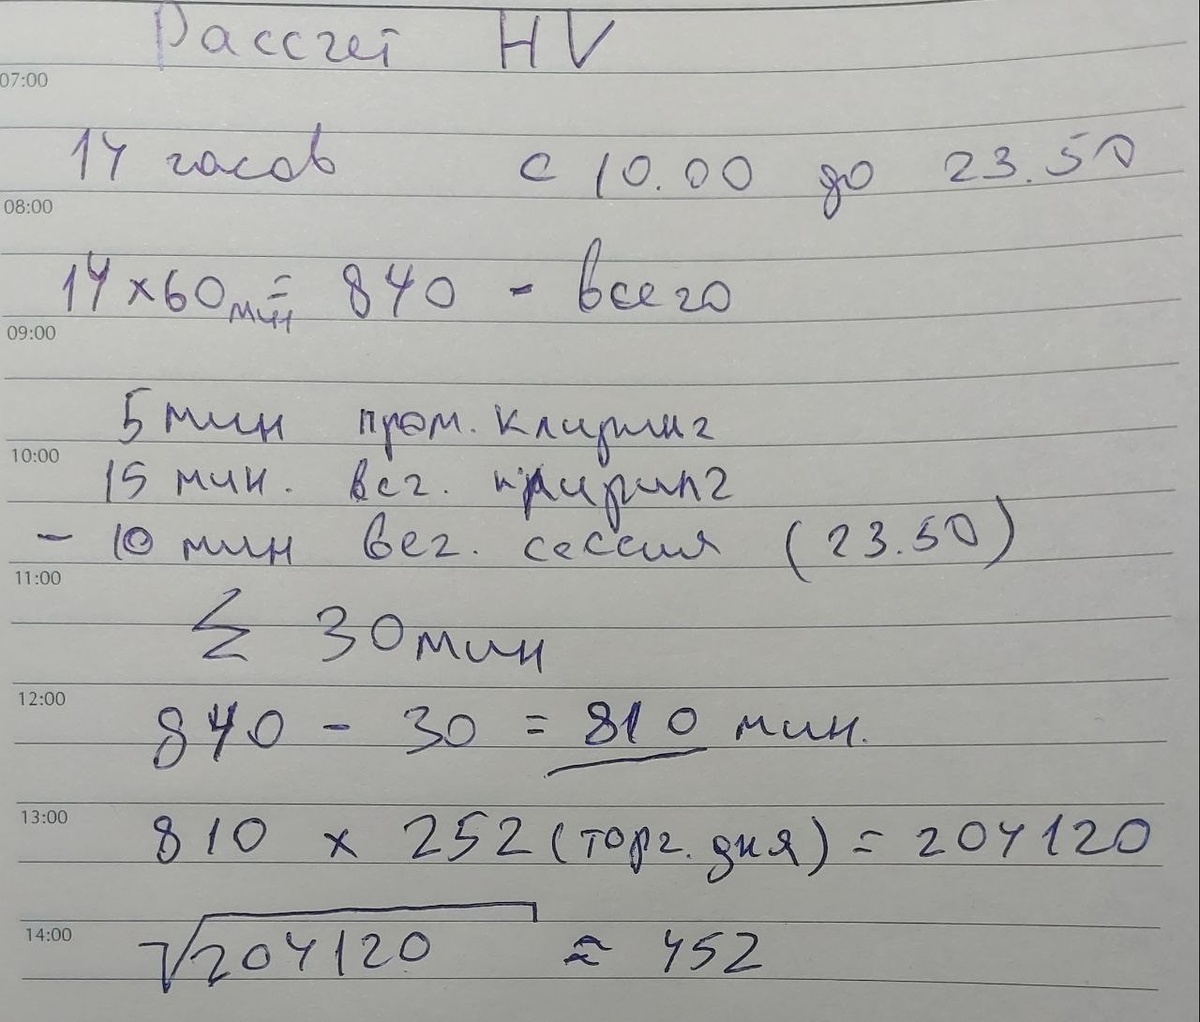 Рассчет HV
07:00
14 часов с 10.00 до 23.50
08:00
14 x 60 мин = 840 - всего
09:00
5 мин пром. клиринг
10:00
15 мин. веч. клиринг
- 10 мин веч. сессия (23.50)
11:00
Σ 30 мин
12:00
840 - 30 = 810 мин.
13:00
810 x 252 (торг. дня) = 204120
14:00
√204120 ≈ 452